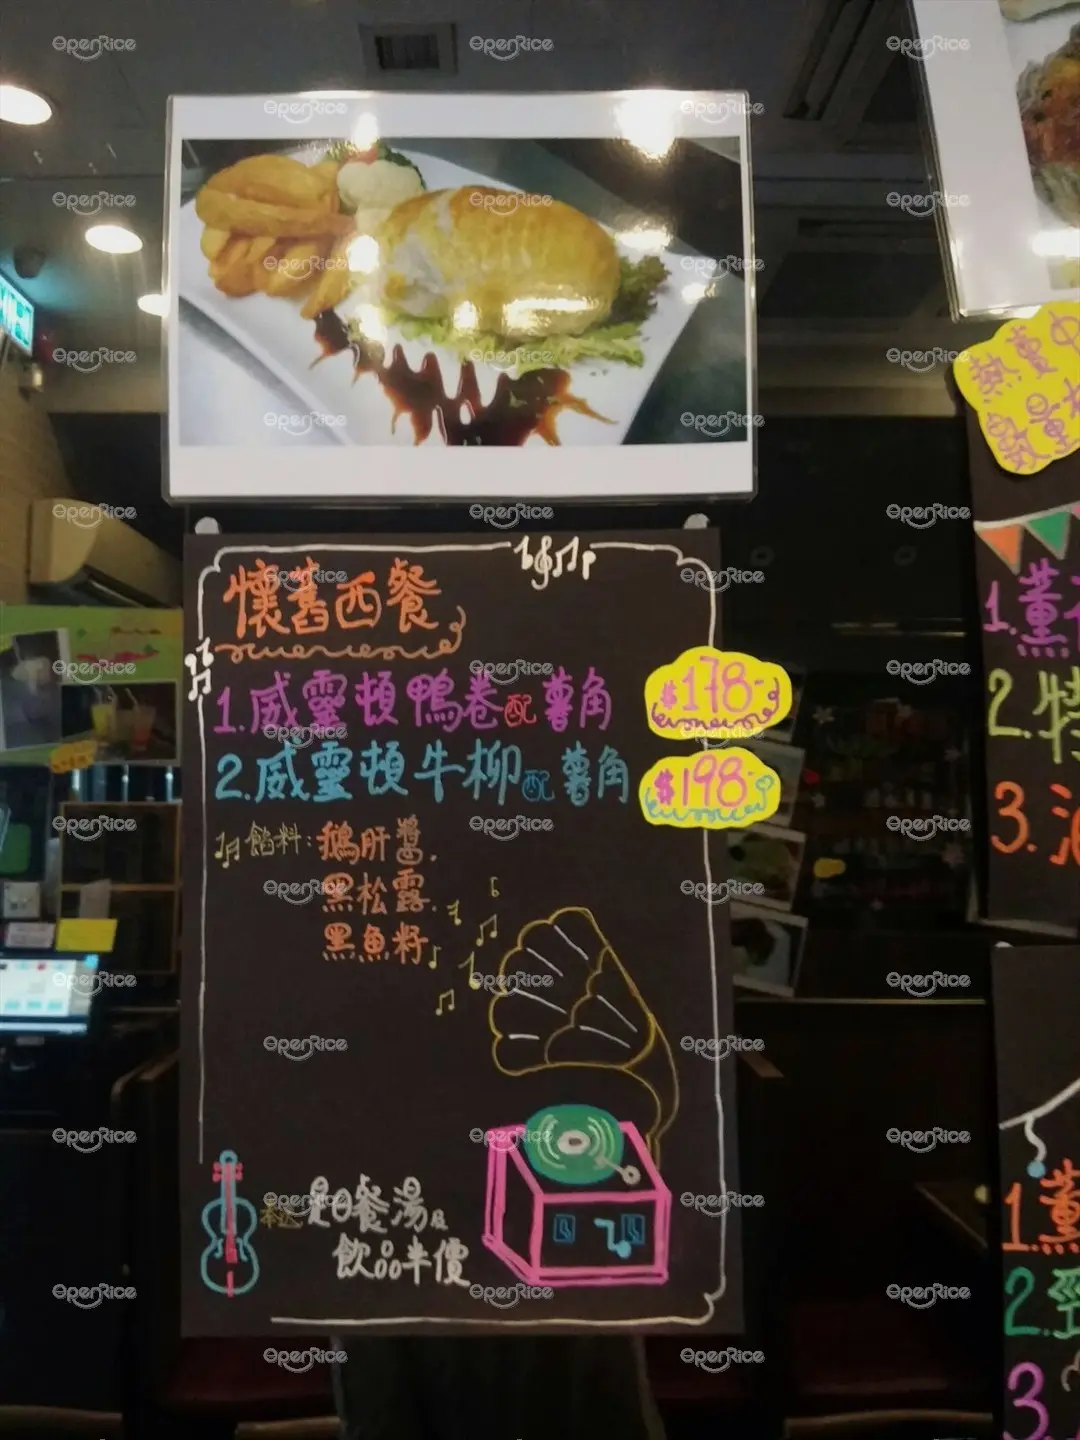 熱賣中
數量
懷舊西餐
1.威靈頓鴨卷配薯角
$178-
2.威靈頓牛柳配薯角
$198-
餡料:鵝肝醬.
黑松露.
黑魚籽
奉送是日餐湯及
飲品半價
1.薰
2.特
3.
1.薰
2.
3.
OpenRice